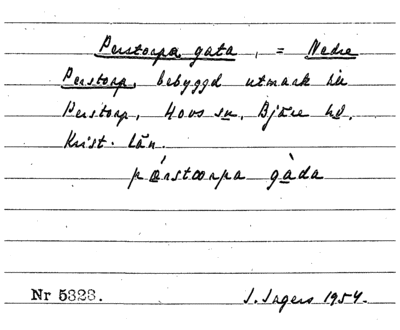 Perstorpa gata, = Nedre
Perstorp, bebyggd utmark till
Perstorp, Hovs sn, Bjäre hd,
Krist. län.
gàda
Nr 5323.
1954.